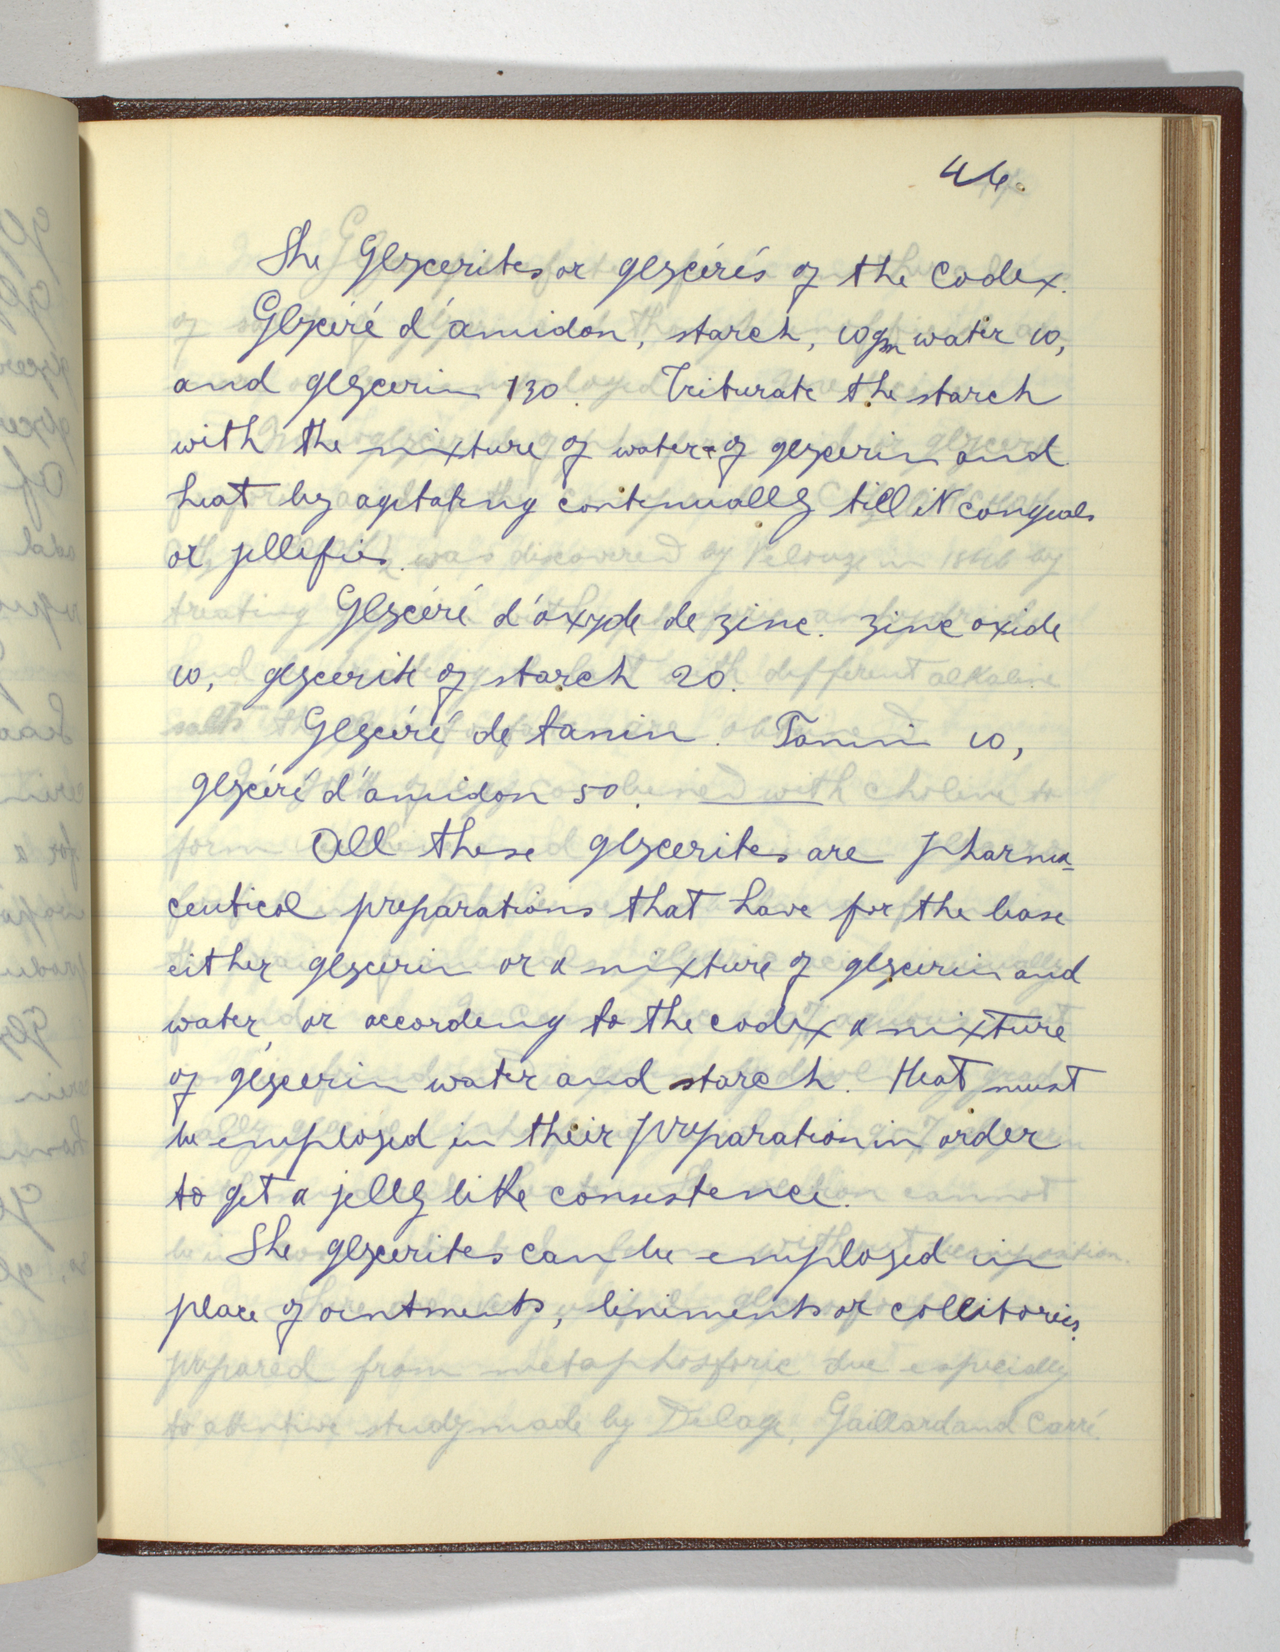 46.
The Glycerites or glycérés of the Codex.
Glycéré d'amidon, starch, 10gm water 10,
and glycerin 130. Triturate the starch
with the mixture of water & of glycerin and
heat by agitating continually till it congeals
or jellifies.
Glycéré d'oxyde de zinc. zinc oxide
10, glycerite of starch 20.
Glycéré de tanin. Tanin 10,
glycéré d'amidon 50.
All these glycerites are pharma-
ceutical preparations that have for the base
either glycerin or a mixture of glycerin and
water, or according to the codex a mixture
of glycerin water and starch. Heat must
be employed in their preparation in order
to get a jelly like consistence.
The glycerites can be employed in
place of ointments, liniments or collitories.
prepared from metaphosforic due especially
to attentive study made by Delage, Gaillard and Carré.